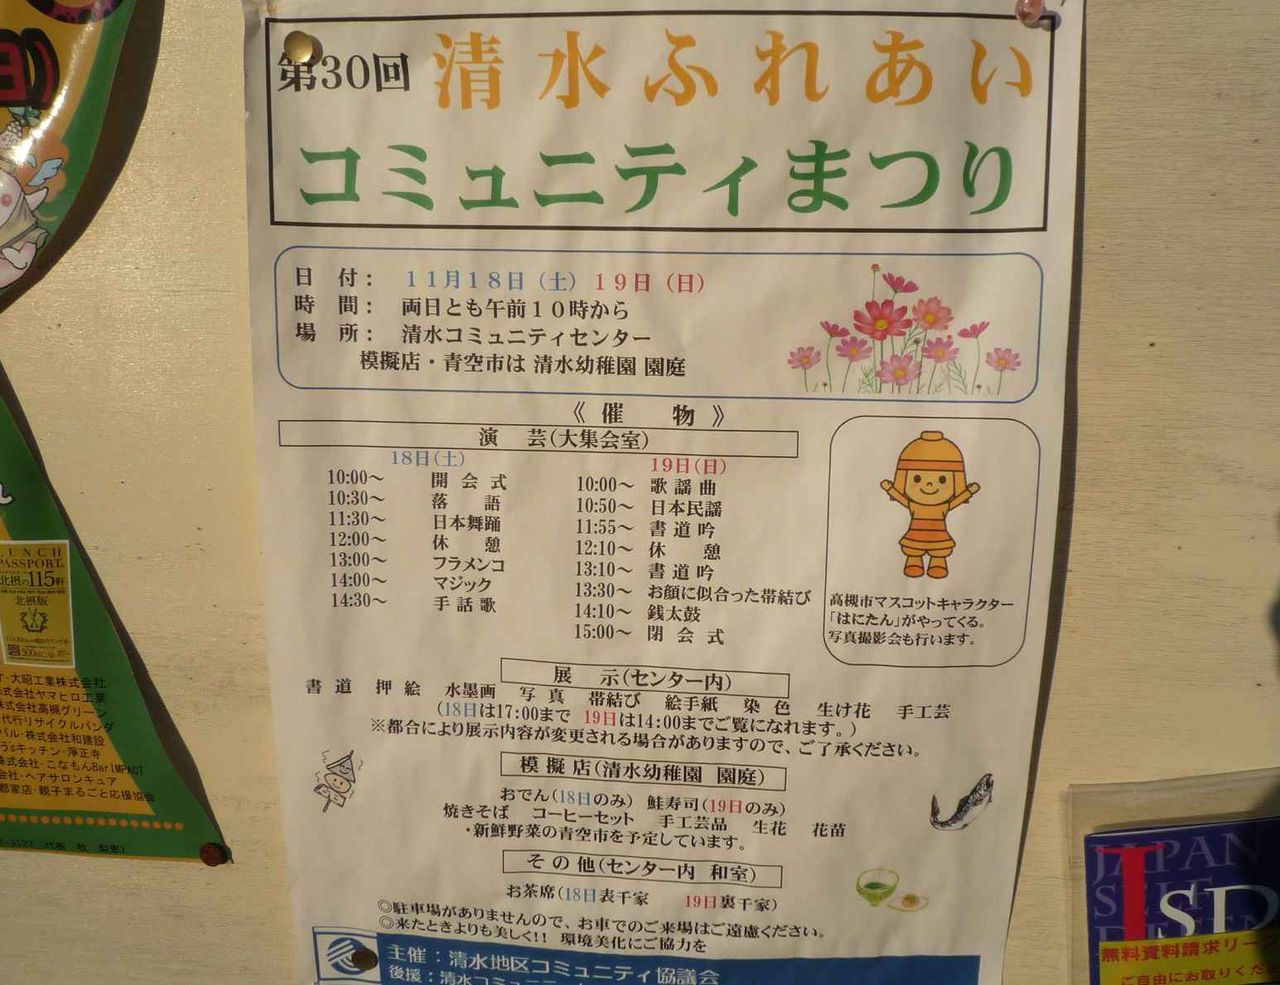 第30回 清水ふれあい
コミュニティまつり
日 付： 11月18日（土）19日（日）
時 間： 両日とも午前10時から
場 所： 清水コミュニティセンター
模擬店・青空市は 清水幼稚園 園庭
《 催 物 》
演 芸（大集会室）
18日（土）
10:00～ 開 会 式
10:30～ 落 語
11:30～ 日本舞踊
12:00～ 休 憩
13:00～ フラメンコ
14:00～ マジック
14:30～ 手 話 歌
19日（日）
10:00～ 歌 謡 曲
10:50～ 日本民謡
11:55～ 書 道 吟
12:10～ 休 憩
13:10～ 書 道 吟
13:30～ お顔に似合った帯結び
14:10～ 銭太鼓
15:00～ 閉 会 式
高槻市マスコットキャラクター
「はにたん」がやってくる。
写真撮影会も行います。
展 示（センター内）
書 道 押 絵 水墨画 写 真 帯結び 絵手紙 染 色 生け花 手工芸
（18日は17:00まで 19日は14:00までご覧になれます。）
※都合により展示内容が変更される場合がありますので、ご了承ください。
模 擬 店（清水幼稚園 園庭）
おでん（18日のみ） 鮭寿司（19日のみ）
焼きそば コーヒーセット 手工芸品 生花 花苗
・新鮮野菜の青空市を予定しています。
そ の 他（センター内 和室）
お茶席（18日表千家 19日裏千家）
◎駐車場がありませんので、お車でのご来場はご遠慮ください。
◎来たときよりも美しく!! 環境美化にご協力を
主催：清水地区コミュニティ協議会
後援：清水コミュニ
LUNCH
PASSPORT
北摂の115軒
北摂版
・大昭工業株式会社
式会社ヤマヒロ工業
株式会社高槻グリーン
代行リサイクルパンダ
バル・株式会社和建設
キッチン・浄正寺
株式会社・こなもんBar IMPACT
会社・ヘアサロンキュア
郡家店・親子まるごと応援協会
JAPAN
SELF
ISD
無料資料請求リー
ご自由にお取りくだ